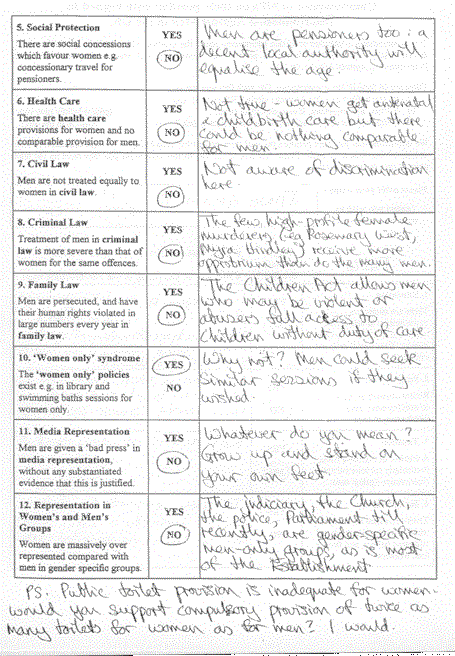 5. Social Protection
There are social concessions
which favour women e.g.
concessionary travel for
pensioners.
YES
NO
Men are pensioners too : a
decent local authority will
equalise the age.
6. Health Care
There are health care
provisions for women and no
comparable provision for men.
YES
NO
Not true - women get antenatal
& childbirth care but there
could be nothing comparable
for men.
7. Civil Law
Men are not treated equally to
women in civil law.
YES
NO
Not aware of discrimination
here.
8. Criminal Law
Treatment of men in criminal
law is more severe than that of
women for the same offences.
YES
NO
The few, high-profile female
murderers (eg Rosemary West,
Myra Hindley) receive more
opprobrium than do the many men.
9. Family Law
Men are persecuted, and have
their human rights violated in
large numbers every year in
family law.
YES
NO
The Children Act allows men
who may be violent or
abusers full access to
children without duty of care
10. 'Women only' syndrome
The 'women only' policies
exist e.g. in library and
swimming baths sessions for
women only.
YES
NO
Why not? Men could seek
similar sessions if they
wished.
11. Media Representation
Men are given a 'bad press' in
media representation,
without any substantiated
evidence that this is justified.
YES
NO
Whatever do you mean?
Grow up and stand on
your own feet.
12. Representation in
Women's and Men's
Groups
Women are massively over
represented compared with
men in gender specific groups.
YES
NO
The judiciary, the Church,
the police, Parliament till
recently, are gender-specific
men-only groups, as is most
of the Establishment
PS. Public toilet provision is inadequate for women.
would you support compulsory provision of twice as
many toilets for women as for men? I would.